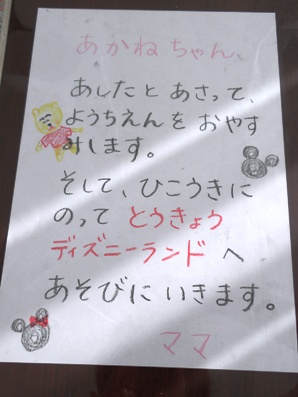 あかねちゃん、
あしたと あさって、
ようちえんを おやす
みします。
そして、ひこうきに
のって とうきょう
ディズニーランド へ
あそびに いきます。
ママ